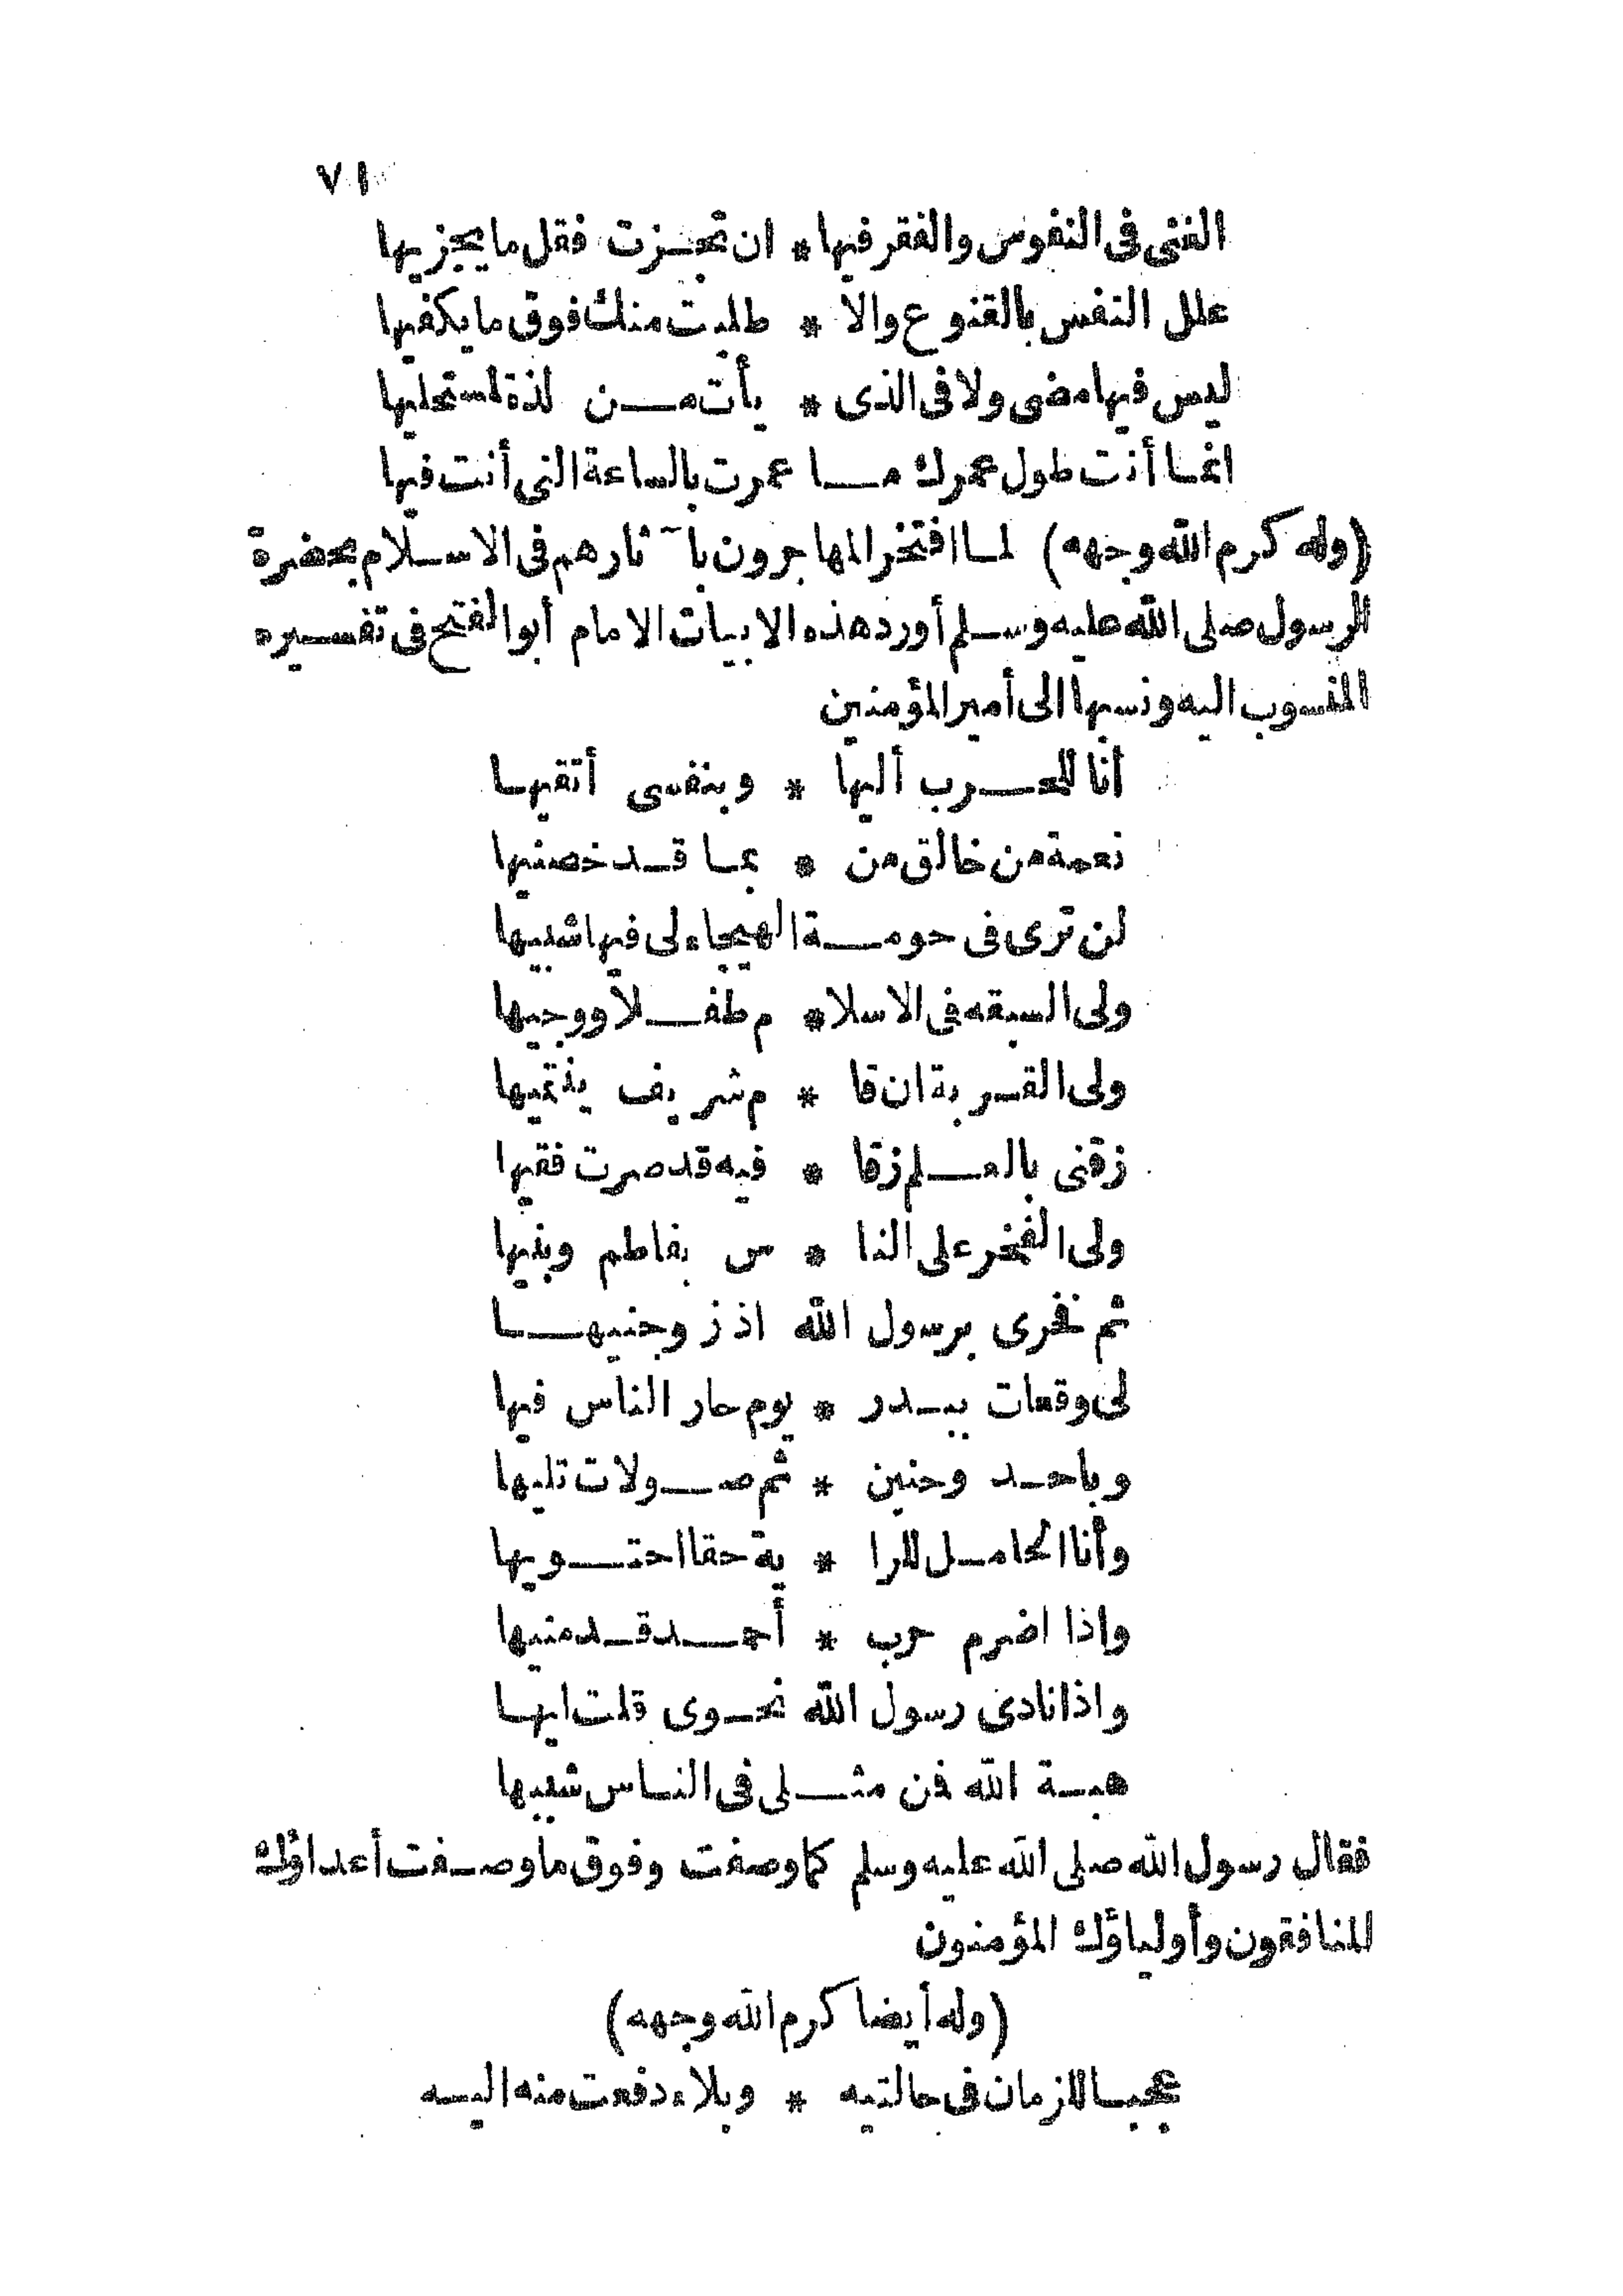 ٧١
الغنى فى النفوس والفقر فيها * ان تجزت فقل ما يجزيها
علل النفس بالقنوع والا * طلبت منك فوق ما يكفيها
ليس فيما مضى ولا فى الذى * يأت من لذة لمستحليها
انما أنت طول عمرك ما عمرت بالساعة التى أنت فيها
(وله كرم الله وجهه) لما افتخر المهاجرون بآثارهم فى الاسلام بحضرة
الرسول صلى الله عليه وسلم أورد هذه الابيات الامام أبو الفتح فى تفسيره
المنسوب اليه ونسبها الى أمير المؤمنين
أنا للحرب أليها * وبنفسى أتقيها
نعمة من خالق من * بما قد خصنيها
لن ترى فى حومة الهيجاء لى فيها شبيها
ولى السبقه فى الاسلا * م طفلا ووجيها
ولى القربة ان قا * م شريف ينتميها
زقنى بالعلم زقا * فيه قد صرت فقيها
ولى الفخر على النا * س بفاطم وبنيها
ثم فخرى برسول الله اذ زوجنيها
لى وقعات ببدر * يوم حار الناس فيها
وباحد وحنين * ثم صولات تليها
وأنا الحامل للرا * ية حقا احتويها
واذا اضرم حرب * أحمد قدمنيها
واذا نادى رسول الله نحوى قلت ايها
هبة الله فمن مثلى فى الناس شبيها
فقال رسول الله صلى الله عليه وسلم كما وصفت وفوق ما وصفت أعداؤك
المنافقون وأولياؤك المؤمنون
(وله أيضا كرم الله وجهه)
عجبا للزمان فى حالتيه * وبلاء دفعت منه اليه